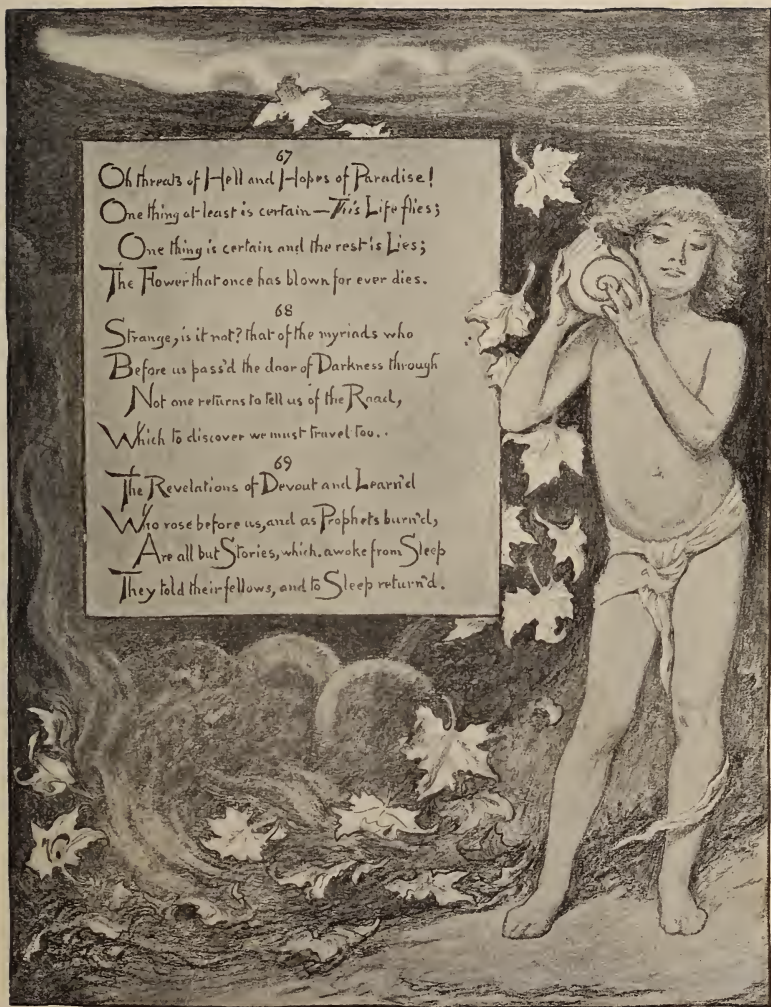 67
Oh threats of Hell and Hopes of Paradise!
One thing at least is certain—This Life flies;
One thing is certain and the rest is Lies;
The Flower that once has blown for ever dies.
68
Strange, is it not? that of the myriads who
Before us pass'd the door of Darkness through
Not one returns to tell us of the Road,
Which to discover we must travel too..
69
The Revelations of Devout and Learn'd
Who rose before us, and as Prophets burn'd,
Are all but Stories, which, awoke from Sleep
They told their fellows, and to Sleep return'd.